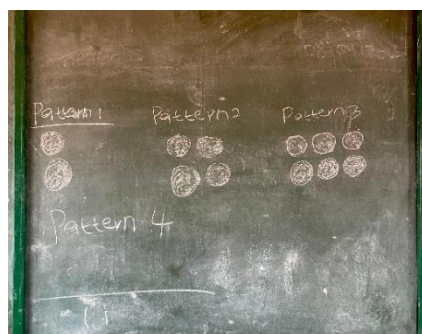 Pattern 1 Pattern 2 Pattern 3
Pattern 4